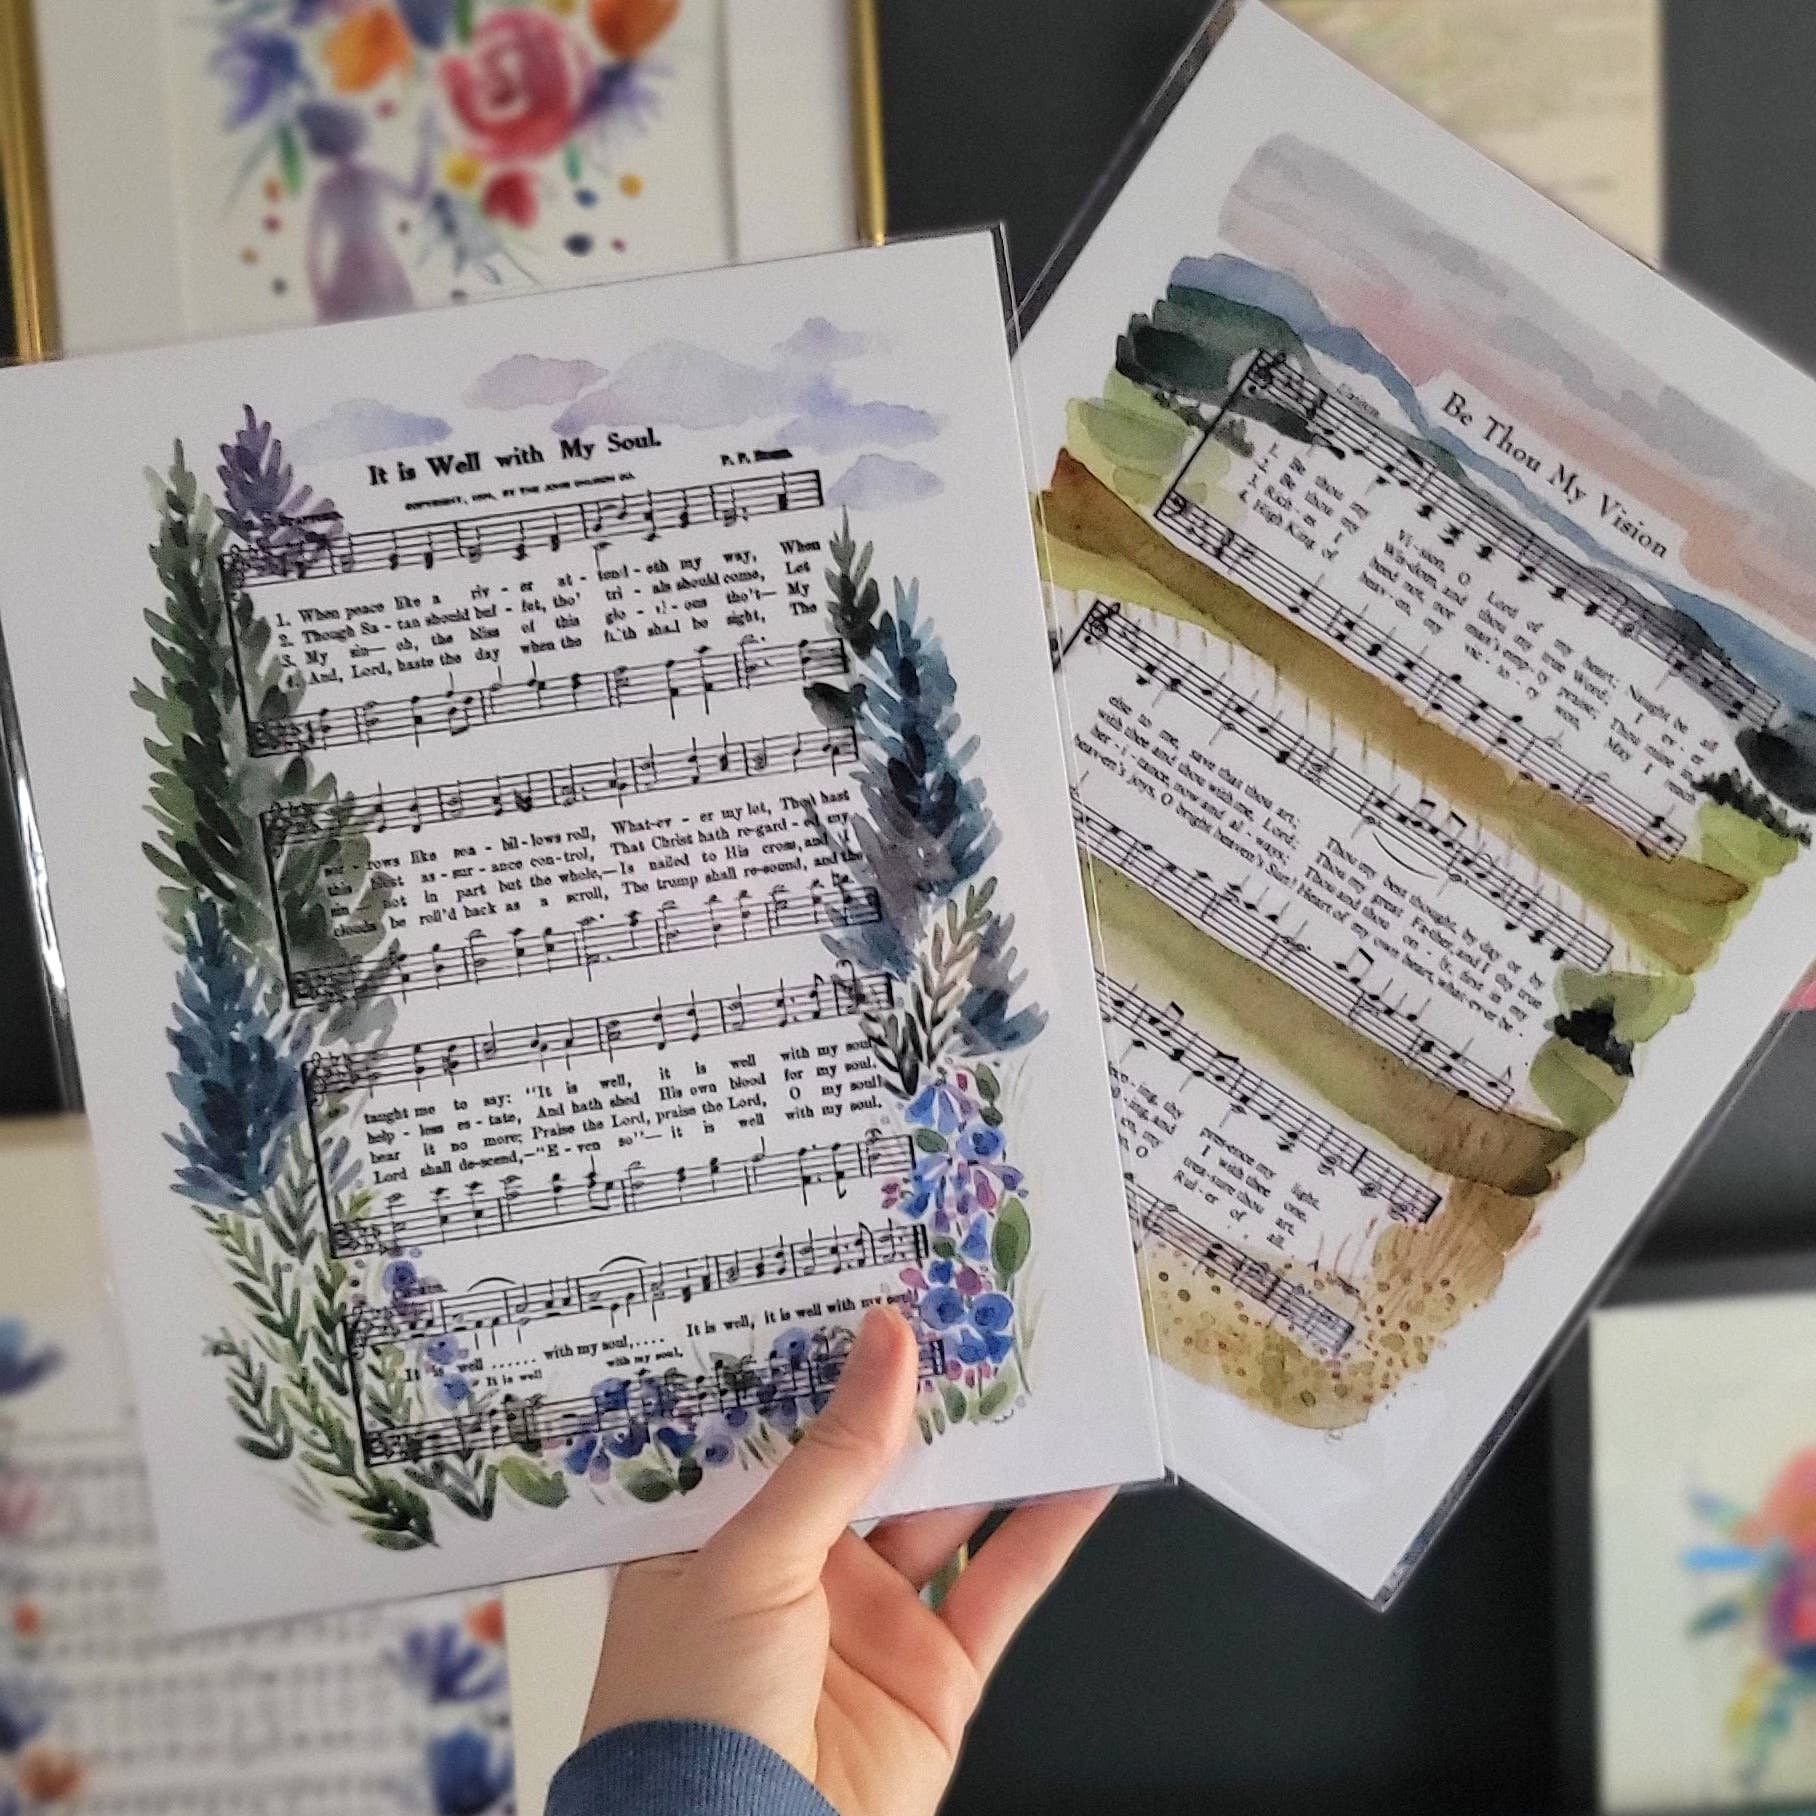 It is Well with My Soul.
COPYRIGHT, BY THE JOHN CHURCH CO.
P. P.
1. When peace like a riv - er at - tend - eth my way, When
2. Though Sa - tan should buf - fet, tho' tri - als should come, Let
3. My sin— oh, the bliss of this glo - ri - ous tho't— My
4. And, Lord, haste the day when the faith shall be sight, The
sor - rows like sea - bil - lows roll, What-ev - er my lot, Thou hast
this blest as - sur - ance con-trol, That Christ hath re-gard - ed my
sin not in part but the whole,—Is nailed to His cross, and I
clouds be roll'd back as a scroll, The trump shall re-sound, and the
taught me to say: "It is well, it is well with my soul
help - less es - tate, And hath shed His own blood for my soul.
bear it no more; Praise the Lord, praise the Lord, O my soul!
Lord shall de-scend,—"E - ven so"— it is well with my soul.
It is well ...... with my soul,.... It is well, it is well with my soul
It is well with my soul,
Be Thou My Vision
Unison
1. Be thou my Vi - sion, O Lord of my heart; Naught be all
2. Be thou my Wis-dom, and thou my true Word; I ev - er
3. Rich - es I heed not, nor man's emp-ty praise; Thou mine in
4. High King of heav - en, my vic - to - ry won, May I reach
else to me, save that thou art; Thou my best thought, by day or by
with thee and thou with me, Lord; Thou my great Fa-ther, and I thy true
her - i - tance, now and al - ways; Thou and thou on - ly, first in my
heaven's joys, O bright heaven's Sun! Heart of my own heart, what-ever be -
ing, thy pres-ence my light.
ing, and I with thee one.
en, my trea-sure thou art.
O Rul - er of all.